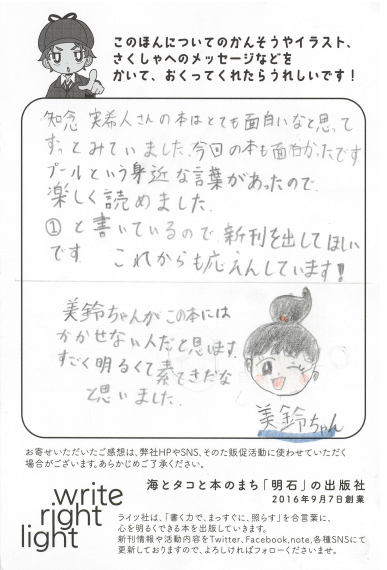 このほんについてのかんそうやイラスト、
さくしゃへのメッセージなどを
かいて、おくってくれたらうれしいです！
知念 実希人さんの本はとても面白いなと思って
ずっとみていました。今回の本も面白かったです
プールという身近な言葉があったので、
楽しく読めました。
①と書いているので、新刊を出してほしい
です。 これからも応えんしています！
美鈴ちゃんがこの本には
かかせない人だと思います。
すごく明るくて素てきだな
と思いました。
美鈴ちゃん
お寄せいただいたご感想は、弊社HPやSNS、そのた販促活動に使わせていただく
場合がございます。あらかじめご了承ください。
write
right
light
海とタコと本のまち「明石」の出版社
2016年9月7日創業
ライツ社は、「書く力で、まっすぐに、照らす」を合言葉に、
心を明るくできる本を出版していきます。
新刊情報や活動内容をTwitter、Facebook、note、各種SNSにて
更新しておりますので、よろしければフォローくださいませ。